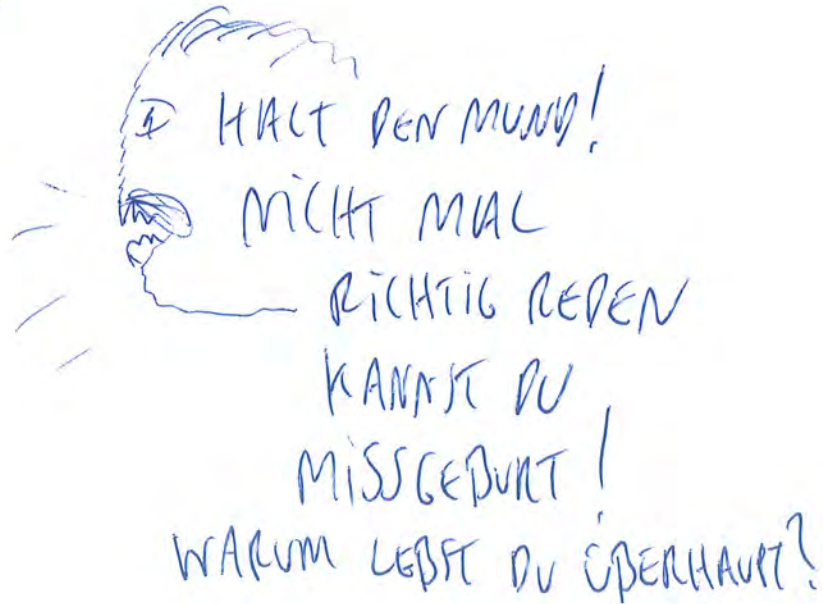 HALT DEN MUND!
NICHT MAL
RICHTIG REDEN
KANNST DU
MISSGEBURT!
WARUM LEBST DU ÜBERHAUPT?